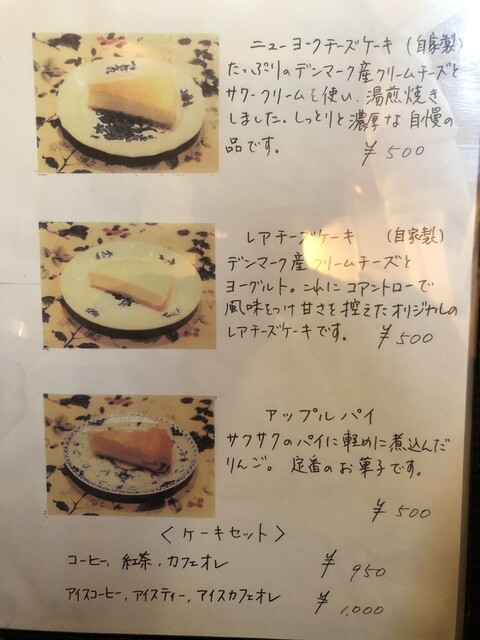 ニューヨークチーズケーキ (自家製)
たっぷりのデンマーク産クリームチーズと
サワークリームを使い、湯煎焼き
しました。しっとりと濃厚な自慢の
品です。 ¥500
レアチーズケーキ (自家製)
デンマーク産クリームチーズと
ヨーグルト。これにコアントローで
風味をつけ甘さを控えたオリジナルの
レアチーズケーキです。 ¥500
アップルパイ
サクサクのパイに軽めに煮込んだ
りんご。定番のお菓子です。
¥500
〈ケーキセット〉
コーヒー, 紅茶, カフェオレ ¥950
アイスコーヒー, アイスティー, アイスカフェオレ ¥1,000